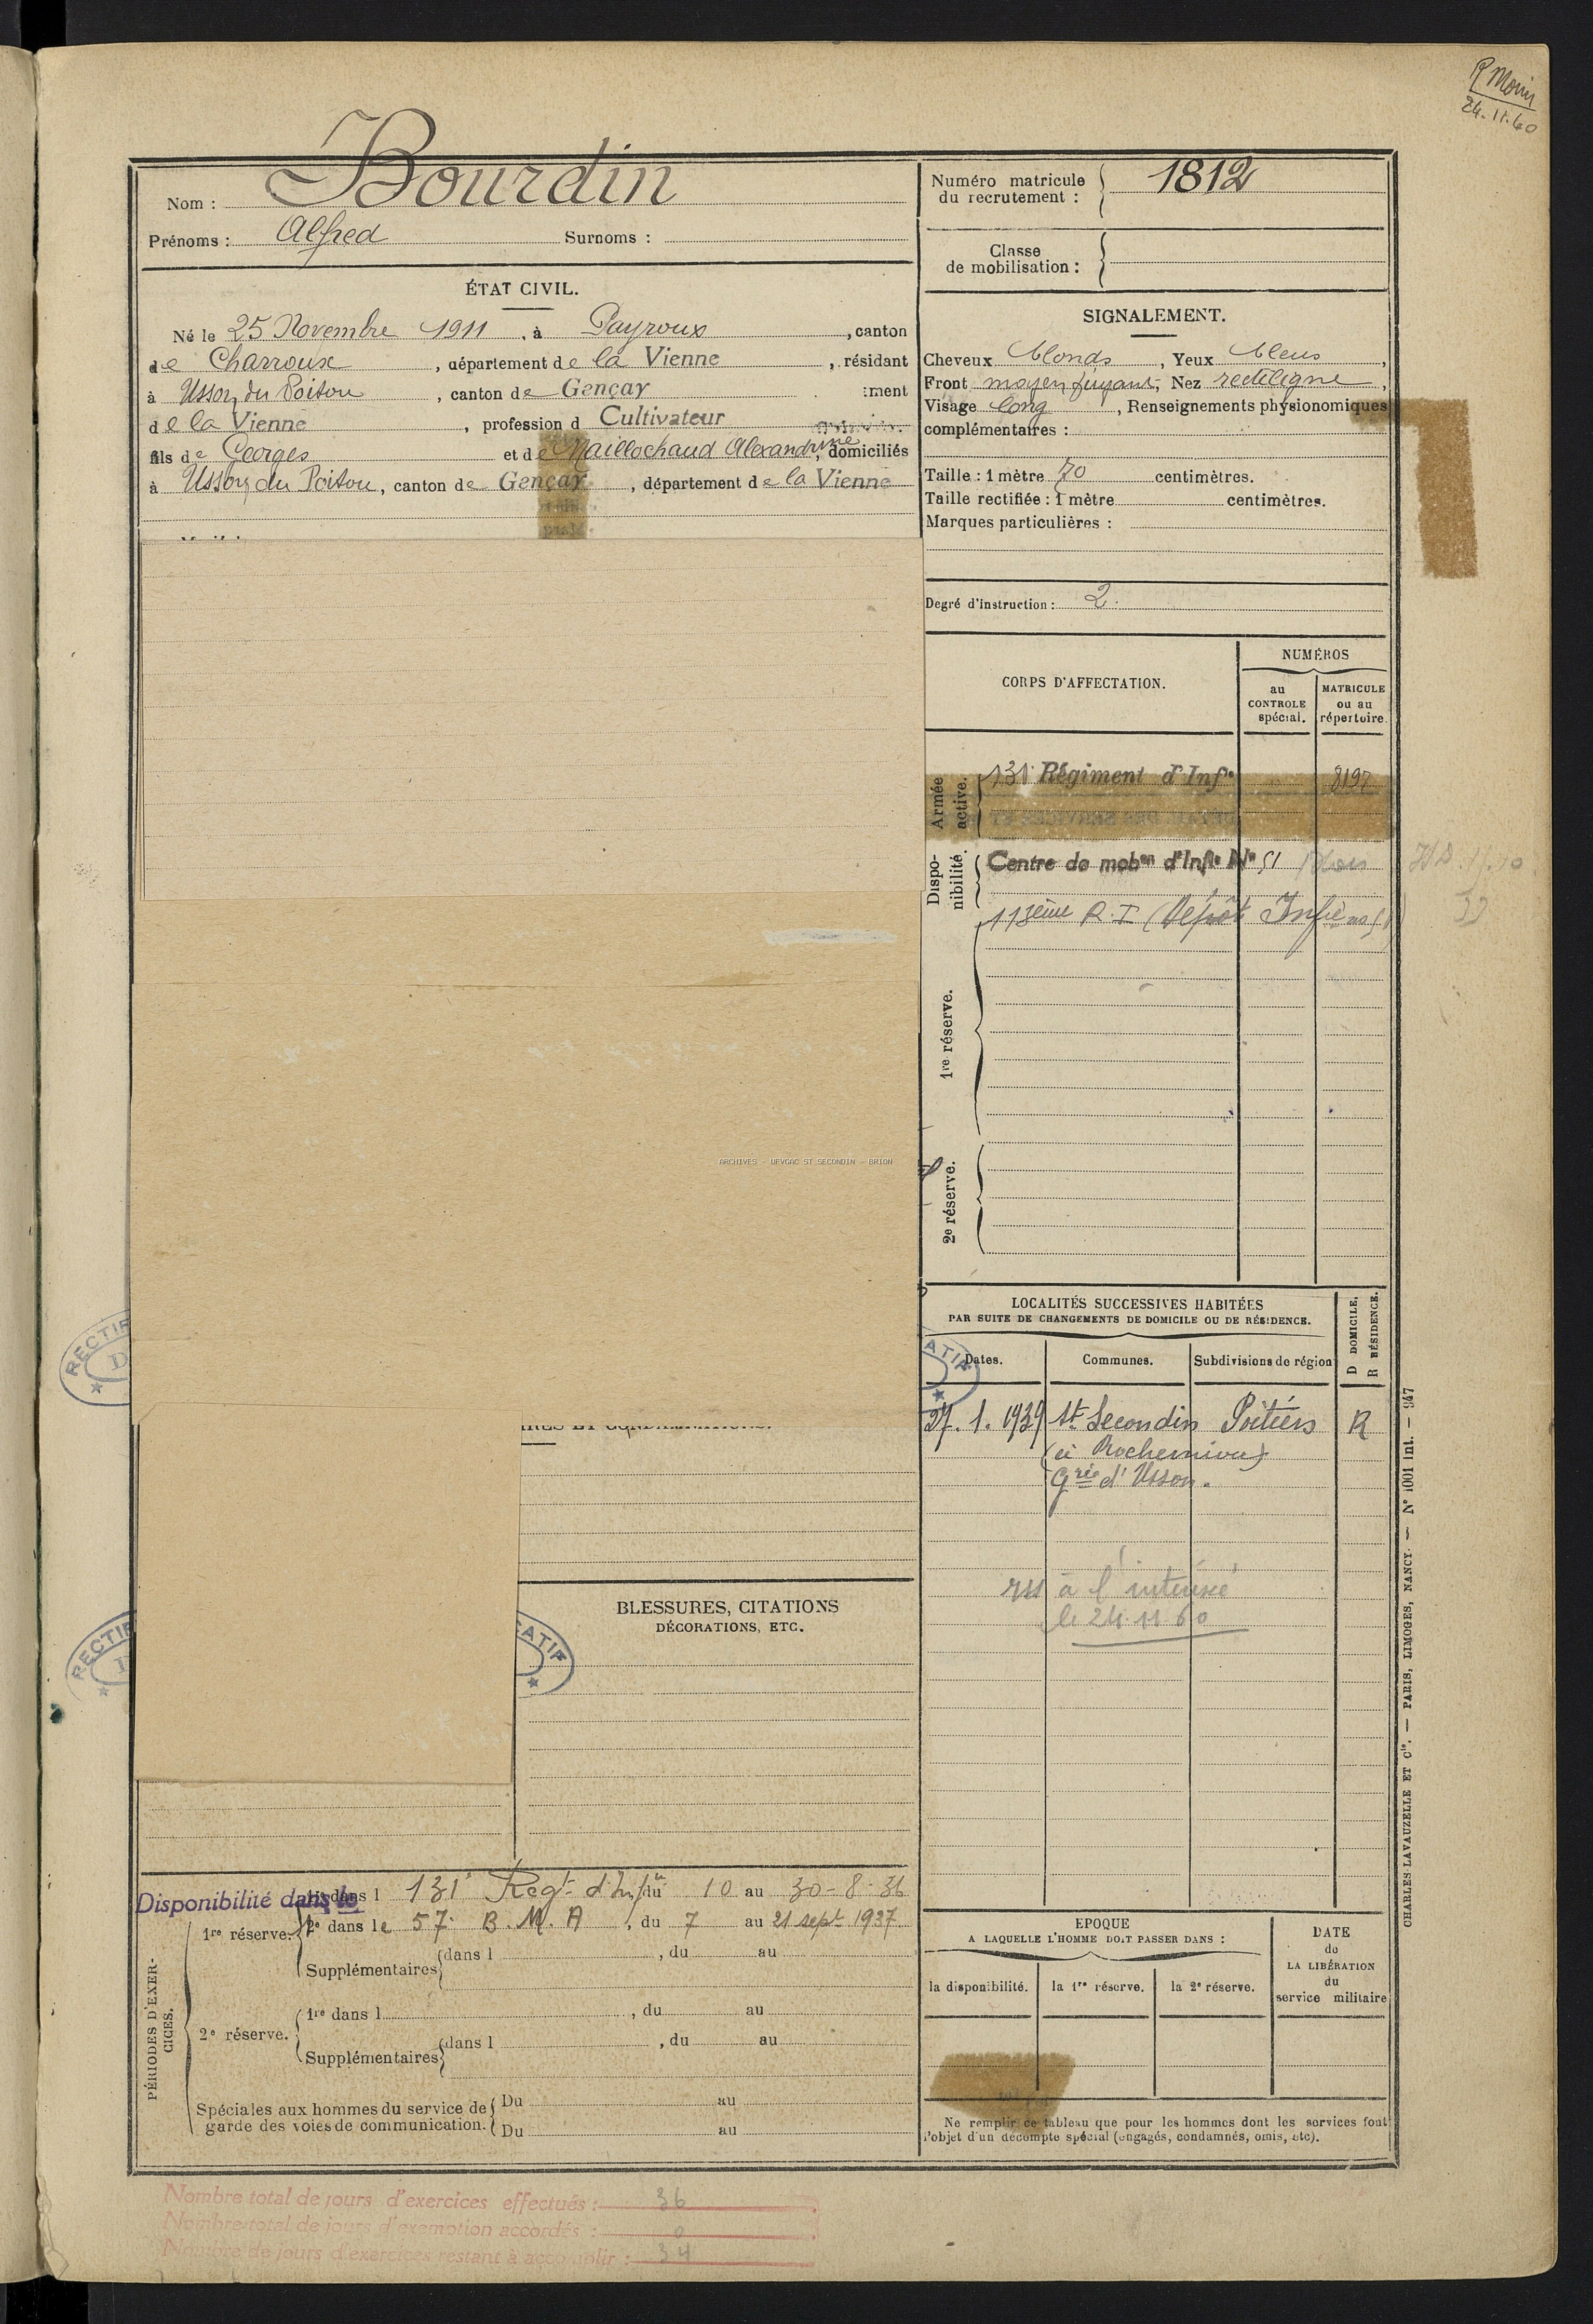 R Morin
24.11.60
Nom : Bourdin
Prénoms : Alfred Surnoms :
Numéro matricule du recrutement : 1812
Classe de mobilisation :
ÉTAT CIVIL.
Né le 25 Novembre 1911, à Payroux, canton
de Charroux, département de la Vienne, résidant
à Usson du Poitou, canton de Gençay :ment
de la Vienne, profession d Cultivateur
fils de Georges et de Naillochaud Alexandrine, domiciliés
à Usson du Poitou, canton de Gençay, département de la Vienne
SIGNALEMENT.
Cheveux blonds, Yeux bleus,
Front moyen fuyant, Nez rectiligne,
Visage long, Renseignements physionomiques
complémentaires :
Taille : 1 mètre 70 centimètres.
Taille rectifiée : 1 mètre centimètres.
Marques particulières :
Degré d'instruction : 2.
CORPS D'AFFECTATION.
NUMÉROS
au CONTROLE spécial.
MATRICULE ou au répertoire.
Armée active.
131e Régiment d'Infie 8197
Dispo-nibilité.
Centre de mobon d'Infie No 51
113ème R.I (Dépôt Infie
1re réserve.
2e réserve.
ARCHIVES - UFVGAC ST SECONDIN - BRION
LOCALITÉS SUCCESSIVES HABITÉES
PAR SUITE DE CHANGEMENTS DE DOMICILE OU DE RÉSIDENCE.
D DOMICILE.
R RÉSIDENCE.
Dates. Communes. Subdivisions de région
27.1.1939 St Secondin Poitiers R
(à Rochemioux)
Grie d'Usson.
à l'
le 24.11.60
RECTIF
ATIF
BLESSURES, CITATIONS
DÉCORATIONS, ETC.
RECTIF
CATIF
PÉRIODES D'EXER-CICES.
Disponibilité dans le
1re dans l 131e Regt d'Infie du 10 au 30-8-36
1re réserve. 2e dans le 57e B.M.A, du 7 au 21 sept 1937
Supplémentaires dans l , du au
2e réserve. 1re dans l , du au
Supplémentaires dans l , du au
Spéciales aux hommes du service de Du au
garde des voies de communication. Du au
EPOQUE
A LAQUELLE L'HOMME DOIT PASSER DANS :
la disponibilité. la 1re réserve. la 2e réserve.
DATE de LA LIBÉRATION du service militaire
Ne remplir ce tableau que pour les hommes dont les services font
l'objet d'un décompte spécial (engagés, condamnés, omis, etc).
CHARLES-LAVAUZELLE ET Cie. — PARIS, LIMOGES, NANCY. — No 1001 int. — 947
Nombre total de jours d'exercices effectués : 36
Nombre total de jours d'exemption accordés : 0
Nombre de jours d'exercices restant à accomplir : 34